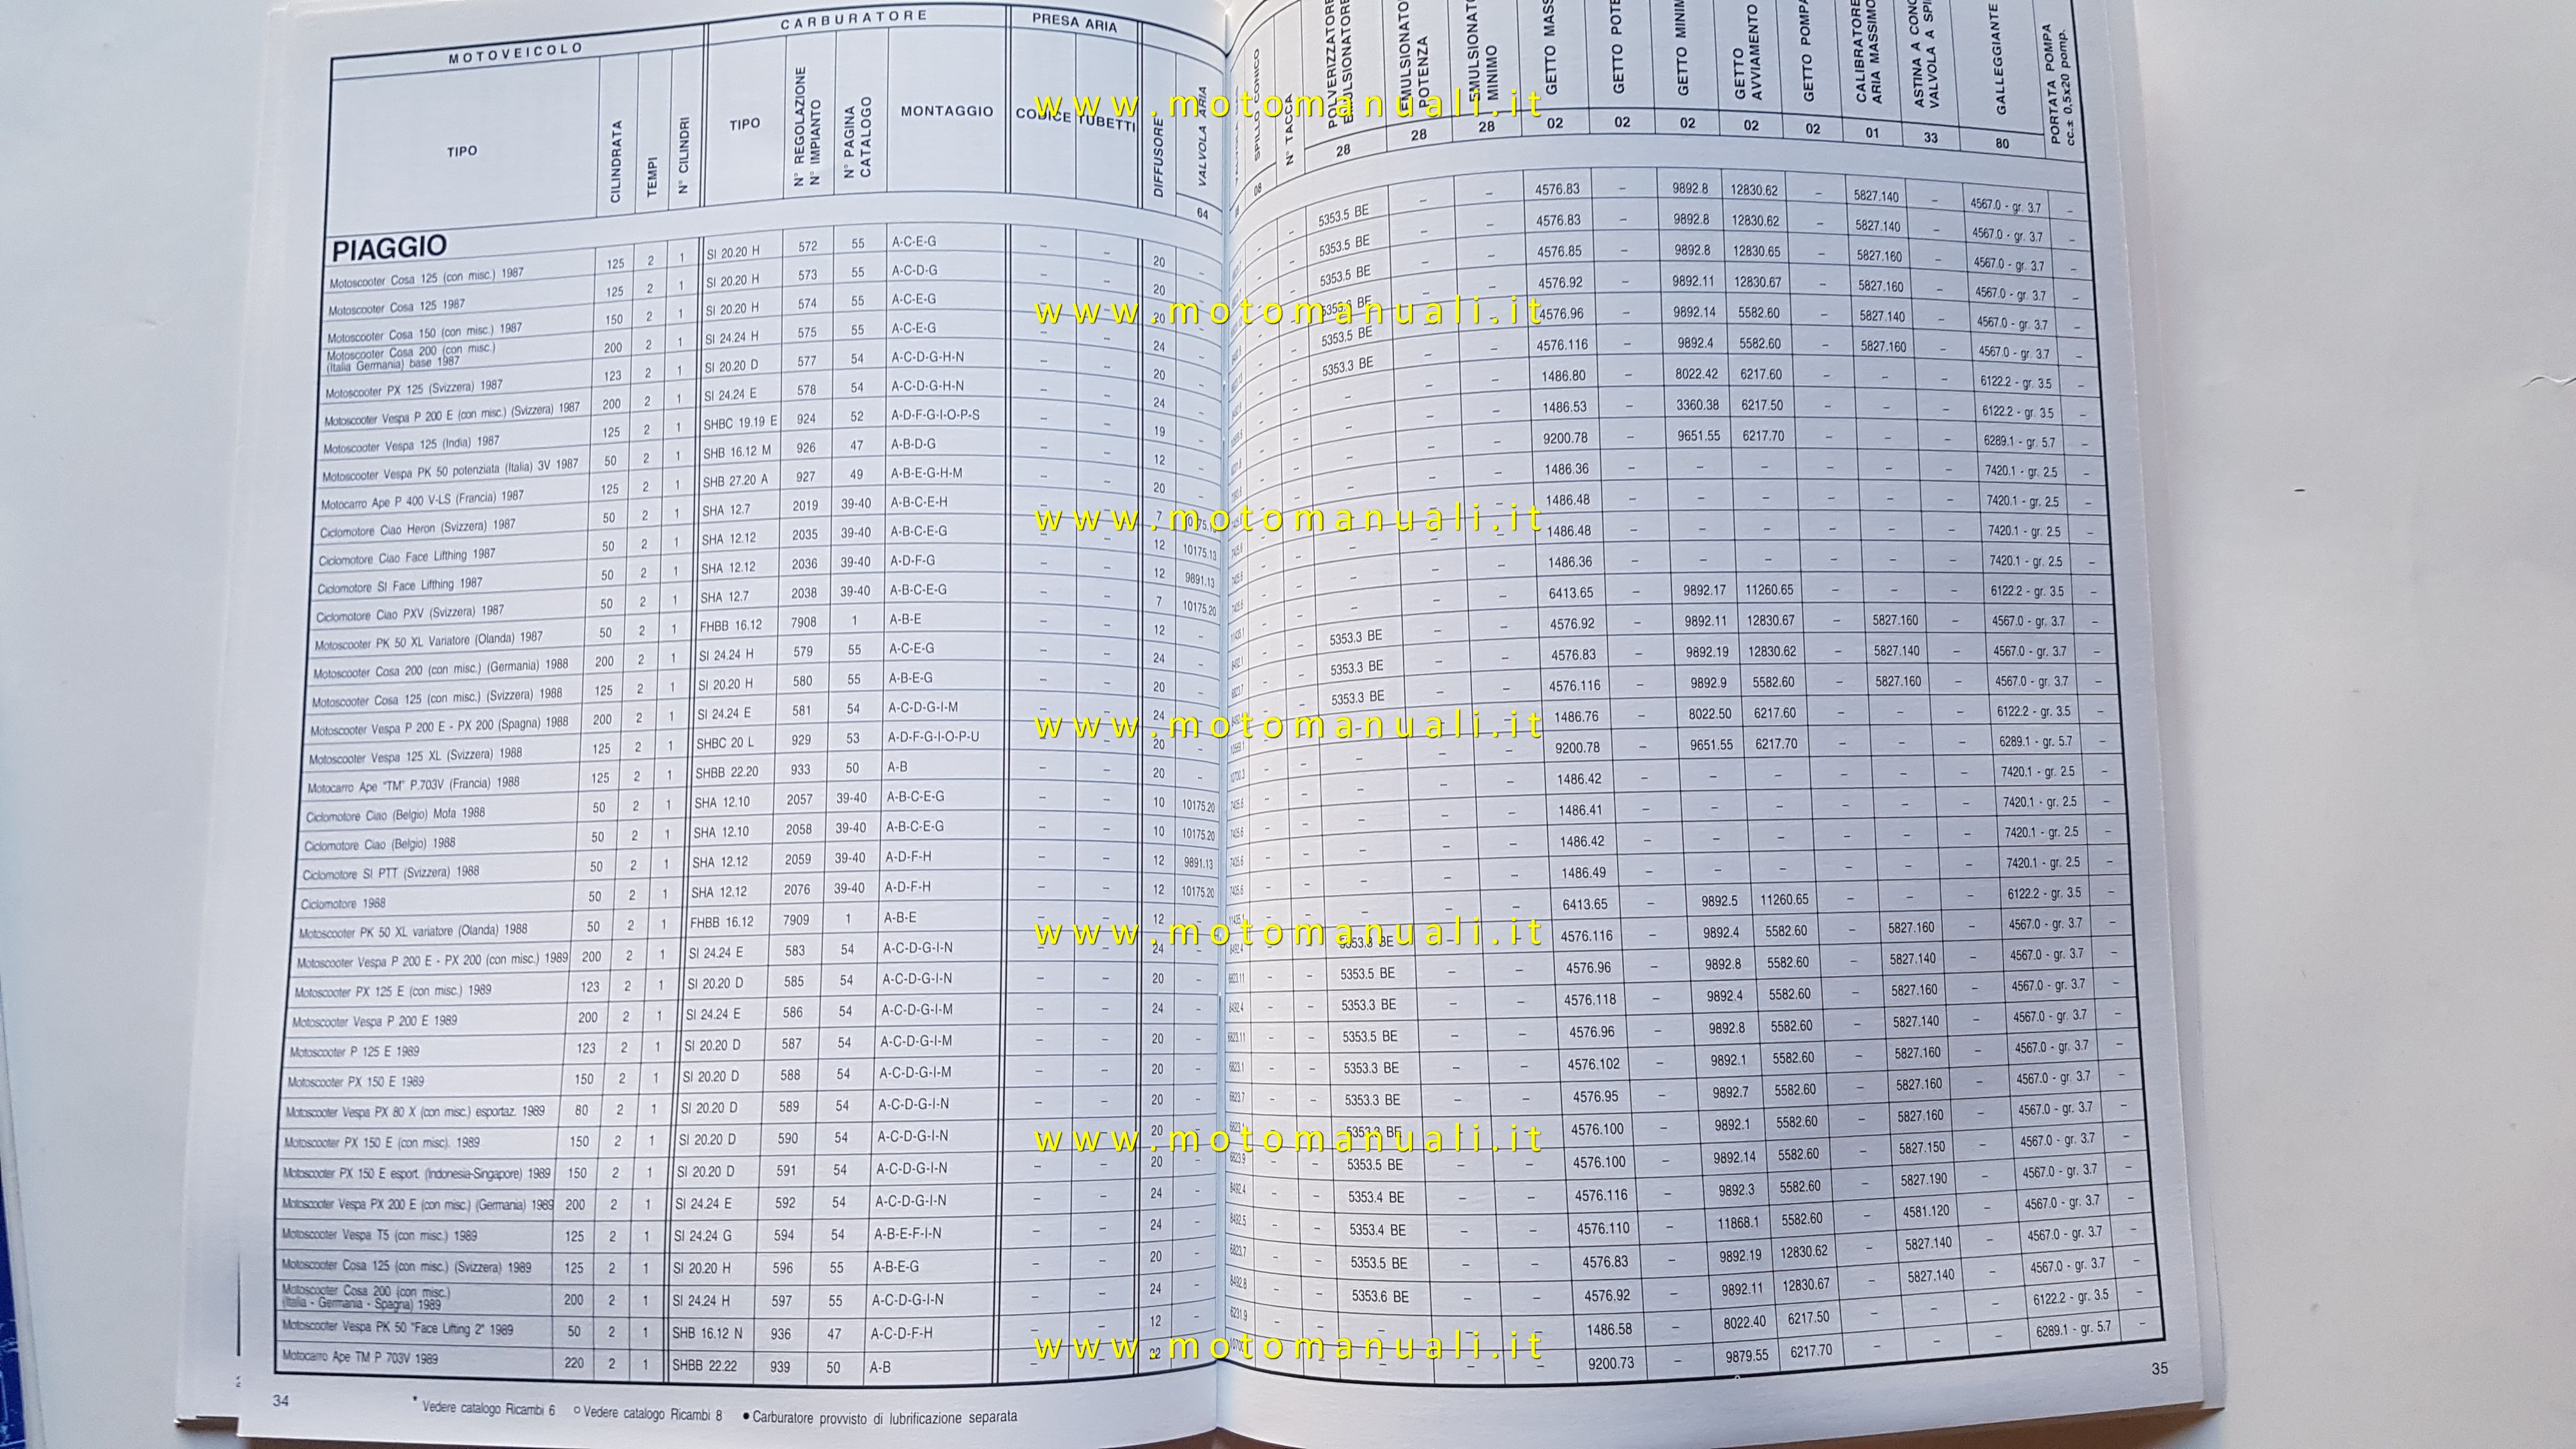 MOTOVEICOLO CARBURATORE PRESA ARIA
TIPO CILINDRATA TEMPI N° CILINDRI TIPO N° REGOLAZIONE N° IMPIANTO N° PAGINA CATALOGO MONTAGGIO CODICE TUBETTI DIFFUSORE VALVOLA ARIA
64
PIAGGIO
Motoscooter Cosa 125 (con misc.) 1987 125 2 1 SI 20.20 H 572 55 A-C-E-G – – 20 –
Motoscooter Cosa 125 1987 125 2 1 SI 20.20 H 573 55 A-C-D-G – – 20 –
Motoscooter Cosa 150 (con misc.) 1987 150 2 1 SI 20.20 H 574 55 A-C-E-G – – 20 –
Motoscooter Cosa 200 (con misc.)
(Italia Germania) base 1987 200 2 1 SI 24.24 H 575 55 A-C-E-G – – 24 –
Motoscooter PX 125 (Svizzera) 1987 123 2 1 SI 20.20 D 577 54 A-C-D-G-H-N – – 20 –
Motoscooter Vespa P 200 E (con misc.) (Svizzera) 1987 200 2 1 SI 24.24 E 578 54 A-C-D-G-H-N – – 24 –
Motoscooter Vespa 125 (India) 1987 125 2 1 SHBC 19.19 E 924 52 A-D-F-G-I-O-P-S – – 19 –
Motoscooter Vespa PK 50 potenziata (Italia) 3V 1987 50 2 1 SHB 16.12 M 926 47 A-B-D-G – – 12 –
Motocarro Ape P 400 V-LS (Francia) 1987 125 2 1 SHB 27.20 A 927 49 A-B-E-G-H-M – – 20 –
Ciclomotore Ciao Heron (Svizzera) 1987 50 2 1 SHA 12.7 2019 39-40 A-B-C-E-H – – 7
Ciclomotore Ciao Face Lifthing 1987 50 2 1 SHA 12.12 2035 39-40 A-B-C-E-G – – 12 10175.13
Ciclomotore SI Face Lifthing 1987 50 2 1 SHA 12.12 2036 39-40 A-D-F-G – – 12 9891.13
Ciclomotore Ciao PXV (Svizzera) 1987 50 2 1 SHA 12.7 2038 39-40 A-B-C-E-G – – 7 10175.20
Motoscooter PK 50 XL Variatore (Olanda) 1987 50 2 1 FHBB 16.12 7908 1 A-B-E – – 12 –
Motoscooter Cosa 200 (con misc.) (Germania) 1988 200 2 1 SI 24.24 H 579 55 A-C-E-G – – 24 –
Motoscooter Cosa 125 (con misc.) (Svizzera) 1988 125 2 1 SI 20.20 H 580 55 A-B-E-G – – 20 –
Motoscooter Vespa P 200 E - PX 200 (Spagna) 1988 200 2 1 SI 24.24 E 581 54 A-C-D-G-I-M – – 24 –
Motoscooter Vespa 125 XL (Svizzera) 1988 125 2 1 SHBC 20 L 929 53 A-D-F-G-I-O-P-U – – 20 –
Motocarro Ape "TM" P.703V (Francia) 1988 125 2 1 SHBB 22.20 933 50 A-B – – 20 –
Ciclomotore Ciao (Belgio) Mofa 1988 50 2 1 SHA 12.10 2057 39-40 A-B-C-E-G – – 10 10175.20
Ciclomotore Ciao (Belgio) 1988 50 2 1 SHA 12.10 2058 39-40 A-B-C-E-G – – 10 10175.20
Ciclomotore SI PTT (Svizzera) 1988 50 2 1 SHA 12.12 2059 39-40 A-D-F-H – – 12 9891.13
Ciclomotore 1988 50 2 1 SHA 12.12 2076 39-40 A-D-F-H – – 12 10175.20
Motoscooter PK 50 XL variatore (Olanda) 1988 50 2 1 FHBB 16.12 7909 1 A-B-E – – 12 –
Motoscooter Vespa P 200 E - PX 200 (con misc.) 1989 200 2 1 SI 24.24 E 583 54 A-C-D-G-I-N – – 24 –
Motoscooter PX 125 E (con misc.) 1989 123 2 1 SI 20.20 D 585 54 A-C-D-G-I-N – – 20 –
Motoscooter Vespa P 200 E 1989 200 2 1 SI 24.24 E 586 54 A-C-D-G-I-M – – 24 –
Motoscooter P 125 E 1989 123 2 1 SI 20.20 D 587 54 A-C-D-G-I-M – – 20 –
Motoscooter PX 150 E 1989 150 2 1 SI 20.20 D 588 54 A-C-D-G-I-M – – 20 –
Motoscooter Vespa PX 80 X (con misc.) esportaz. 1989 80 2 1 SI 20.20 D 589 54 A-C-D-G-I-N – – 20 –
Motoscooter PX 150 E (con misc). 1989 150 2 1 SI 20.20 D 590 54 A-C-D-G-I-N – – 20 –
Motoscooter PX 150 E esport. (Indonesia-Singapore) 1989 150 2 1 SI 20.20 D 591 54 A-C-D-G-I-N – – 20 –
Motoscooter Vespa PX 200 E (con misc.) (Germania) 1989 200 2 1 SI 24.24 E 592 54 A-C-D-G-I-N – – 24 –
Motoscooter Vespa T5 (con misc.) 1989 125 2 1 SI 24.24 G 594 54 A-B-E-F-I-N – – 24 –
Motoscooter Cosa 125 (con misc.) (Svizzera) 1989 125 2 1 SI 20.20 H 596 55 A-B-E-G – – 20 –
Motoscooter Cosa 200 (con misc.)
(Italia - Germania - Spagna) 1989 200 2 1 SI 24.24 H 597 55 A-C-D-G-I-N – – 24 –
Motoscooter Vespa PK 50 "Face Lifting 2" 1989 50 2 1 SHB 16.12 N 936 47 A-C-D-F-H – – 12 –
Motocarro Ape TM P 703V 1989 220 2 1 SHBB 22.22 939 50 A-B – – 22
34
* Vedere catalogo Ricambi 6 ○ Vedere catalogo Ricambi 8 ● Carburatore provvisto di lubrificazione separata
SPILLO CONICO N° TACCA POLVERIZZATORE EMULSIONATORE EMULSIONATO POTENZA EMULSIONATO MINIMO GETTO MASS GETTO POTE GETTO MINIM GETTO AVVIAMENTO GETTO POMPA CALIBRATORE ARIA MASSIMO ASTINA A CONO VALVOLA A SPI GALLEGGIANTE PORTATA POMPA cc.± 0,5x20 pomp.
08 28 28 28 02 02 02 02 02 01 33 80
5353.5 BE – – 4576.83 – 9892.8 12830.62 – 5827.140 – 4567.0 - gr. 3.7 –
5353.5 BE – – 4576.83 – 9892.8 12830.62 – 5827.140 – 4567.0 - gr. 3.7 –
5353.5 BE – – 4576.85 – 9892.8 12830.65 – 5827.160 – 4567.0 - gr. 3.7 –
– – 4576.92 – 9892.11 12830.67 – 5827.160 – 4567.0 - gr. 3.7 –
5353.5 BE – – 4576.96 – 9892.14 5582.60 – 5827.140 – 4567.0 - gr. 3.7 –
5353.3 BE – – 4576.116 – 9892.4 5582.60 – 5827.160 – 4567.0 - gr. 3.7 –
– – – 1486.80 – 8022.42 6217.60 – – – 6122.2 - gr. 3.5 –
– – – 1486.53 – 3360.38 6217.50 – – – 6122.2 - gr. 3.5 –
– – – 9200.78 – 9651.55 6217.70 – – – 6289.1 - gr. 5.7 –
– – – 1486.36 – – – – – – 7420.1 - gr. 2.5 –
– – – 1486.48 – – – – – – 7420.1 - gr. 2.5 –
– – – 1486.48 – – – – – – 7420.1 - gr. 2.5 –
– – – 1486.36 – – – – – – 7420.1 - gr. 2.5 –
– – – 6413.65 – 9892.17 11260.65 – – – 6122.2 - gr. 3.5 –
5353.3 BE – – 4576.92 – 9892.11 12830.67 – 5827.160 – 4567.0 - gr. 3.7 –
5353.3 BE – – 4576.83 – 9892.19 12830.62 – 5827.140 – 4567.0 - gr. 3.7 –
5353.3 BE – – 4576.116 – 9892.9 5582.60 – 5827.160 – 4567.0 - gr. 3.7 –
– – – 1486.76 – 8022.50 6217.60 – – – 6122.2 - gr. 3.5 –
– – – 9200.78 – 9651.55 6217.70 – – – 6289.1 - gr. 5.7 –
– – – 1486.42 – – – – – – 7420.1 - gr. 2.5 –
– – – 1486.41 – – – – – – 7420.1 - gr. 2.5 –
– – – 1486.42 – – – – – – 7420.1 - gr. 2.5 –
– – – 1486.49 – – – – – – 7420.1 - gr. 2.5 –
– – – 6413.65 – 9892.5 11260.65 – – – 6122.2 - gr. 3.5 –
5353.3 BE – – 4576.116 – 9892.4 5582.60 – 5827.160 – 4567.0 - gr. 3.7 –
5353.5 BE – – 4576.96 – 9892.8 5582.60 – 5827.140 – 4567.0 - gr. 3.7 –
5353.3 BE – – 4576.118 – 9892.4 5582.60 – 5827.160 – 4567.0 - gr. 3.7 –
5353.5 BE – – 4576.96 – 9892.8 5582.60 – 5827.140 – 4567.0 - gr. 3.7 –
5353.3 BE – – 4576.102 – 9892.1 5582.60 – 5827.160 – 4567.0 - gr. 3.7 –
5353.3 BE – – 4576.95 – 9892.7 5582.60 – 5827.160 – 4567.0 - gr. 3.7 –
5353.3 BE – – 4576.100 – 9892.1 5582.60 – 5827.160 – 4567.0 - gr. 3.7 –
5353.5 BE – – 4576.100 – 9892.14 5582.60 – 5827.150 – 4567.0 - gr. 3.7 –
5353.4 BE – – 4576.116 – 9892.3 5582.60 – 5827.190 – 4567.0 - gr. 3.7 –
5353.4 BE – – 4576.110 – 11868.1 5582.60 – 4581.120 – 4567.0 - gr. 3.7 –
5353.5 BE – – 4576.83 – 9892.19 12830.62 – 5827.140 – 4567.0 - gr. 3.7 –
5353.6 BE – – 4576.92 – 9892.11 12830.67 – 5827.140 – 4567.0 - gr. 3.7 –
– – – 1486.58 – 8022.40 6217.50 – – – 6122.2 - gr. 3.5 –
– – – 9200.73 – 9879.55 6217.70 – – – 6289.1 - gr. 5.7 –
35
www.motomanuali.it
www.motomanuali.it
www.motomanuali.it
www.motomanuali.it
www.motomanuali.it
www.motomanuali.it
www.motomanuali.it